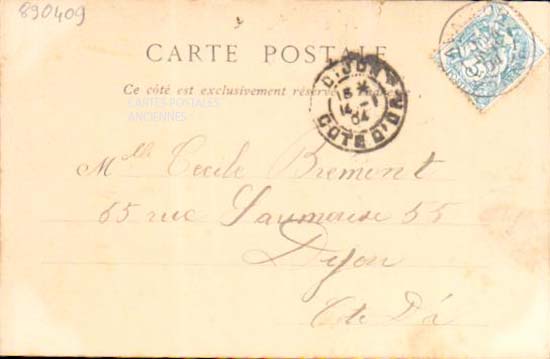 890409
CARTE POSTALE
Ce côté est exclusivement réservé
CARTES POSTALES
ANCIENNES
DIJON
15 *
14 -1
04
COTE D'OR
Mlle Cecile Bremont
55 rue Saumaise 55
Dijon
Cte D'Or